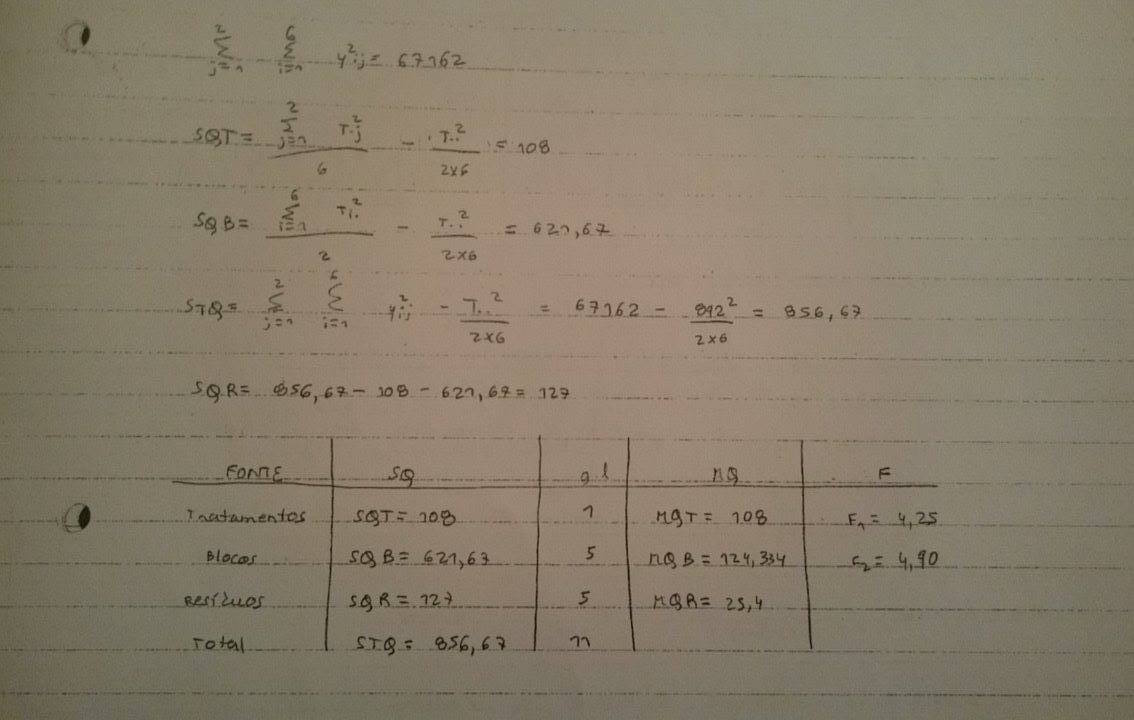 2∑j=1 6∑i=1 y²ij = 67162
SQT = (2∑j=1 T.j²)/6 - T..²/(2x6) = 108
SQB = (6∑i=1 Ti.²)/2 - T..²/(2x6) = 621,67
STQ = 2∑j=1 6∑i=1 y²ij - T..²/(2x6) = 67162 - 892²/(2x6) = 856,67
SQR = 856,67 - 108 - 621,67 = 127
FONTE SQ gl MQ F
Tratamentos SQT = 108 1 MQT = 108 F1 = 4,25
Blocos SQB = 621,67 5 MQB = 124,334 F2 = 4,90
Resíduos SQR = 127 5 MQR = 25,4
Total STQ = 856,67 11